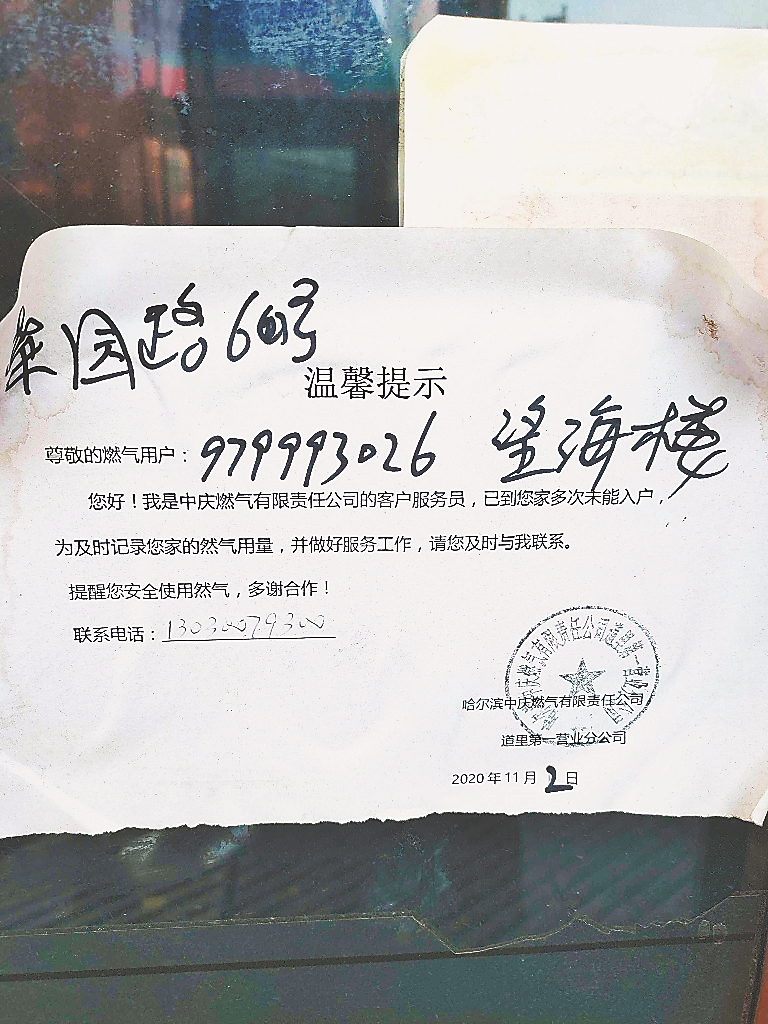 菜园路60号
温馨提示
尊敬的燃气用户：979993026 望海楼
您好！我是中庆燃气有限责任公司的客户服务员，已到您家多次未能入户，
为及时记录您家的然气用量，并做好服务工作，请您及时与我联系。
提醒您安全使用然气，多谢合作！
联系电话：
哈尔滨中庆燃气有限责任公司
道里第一营业分公司
2020年11月2日